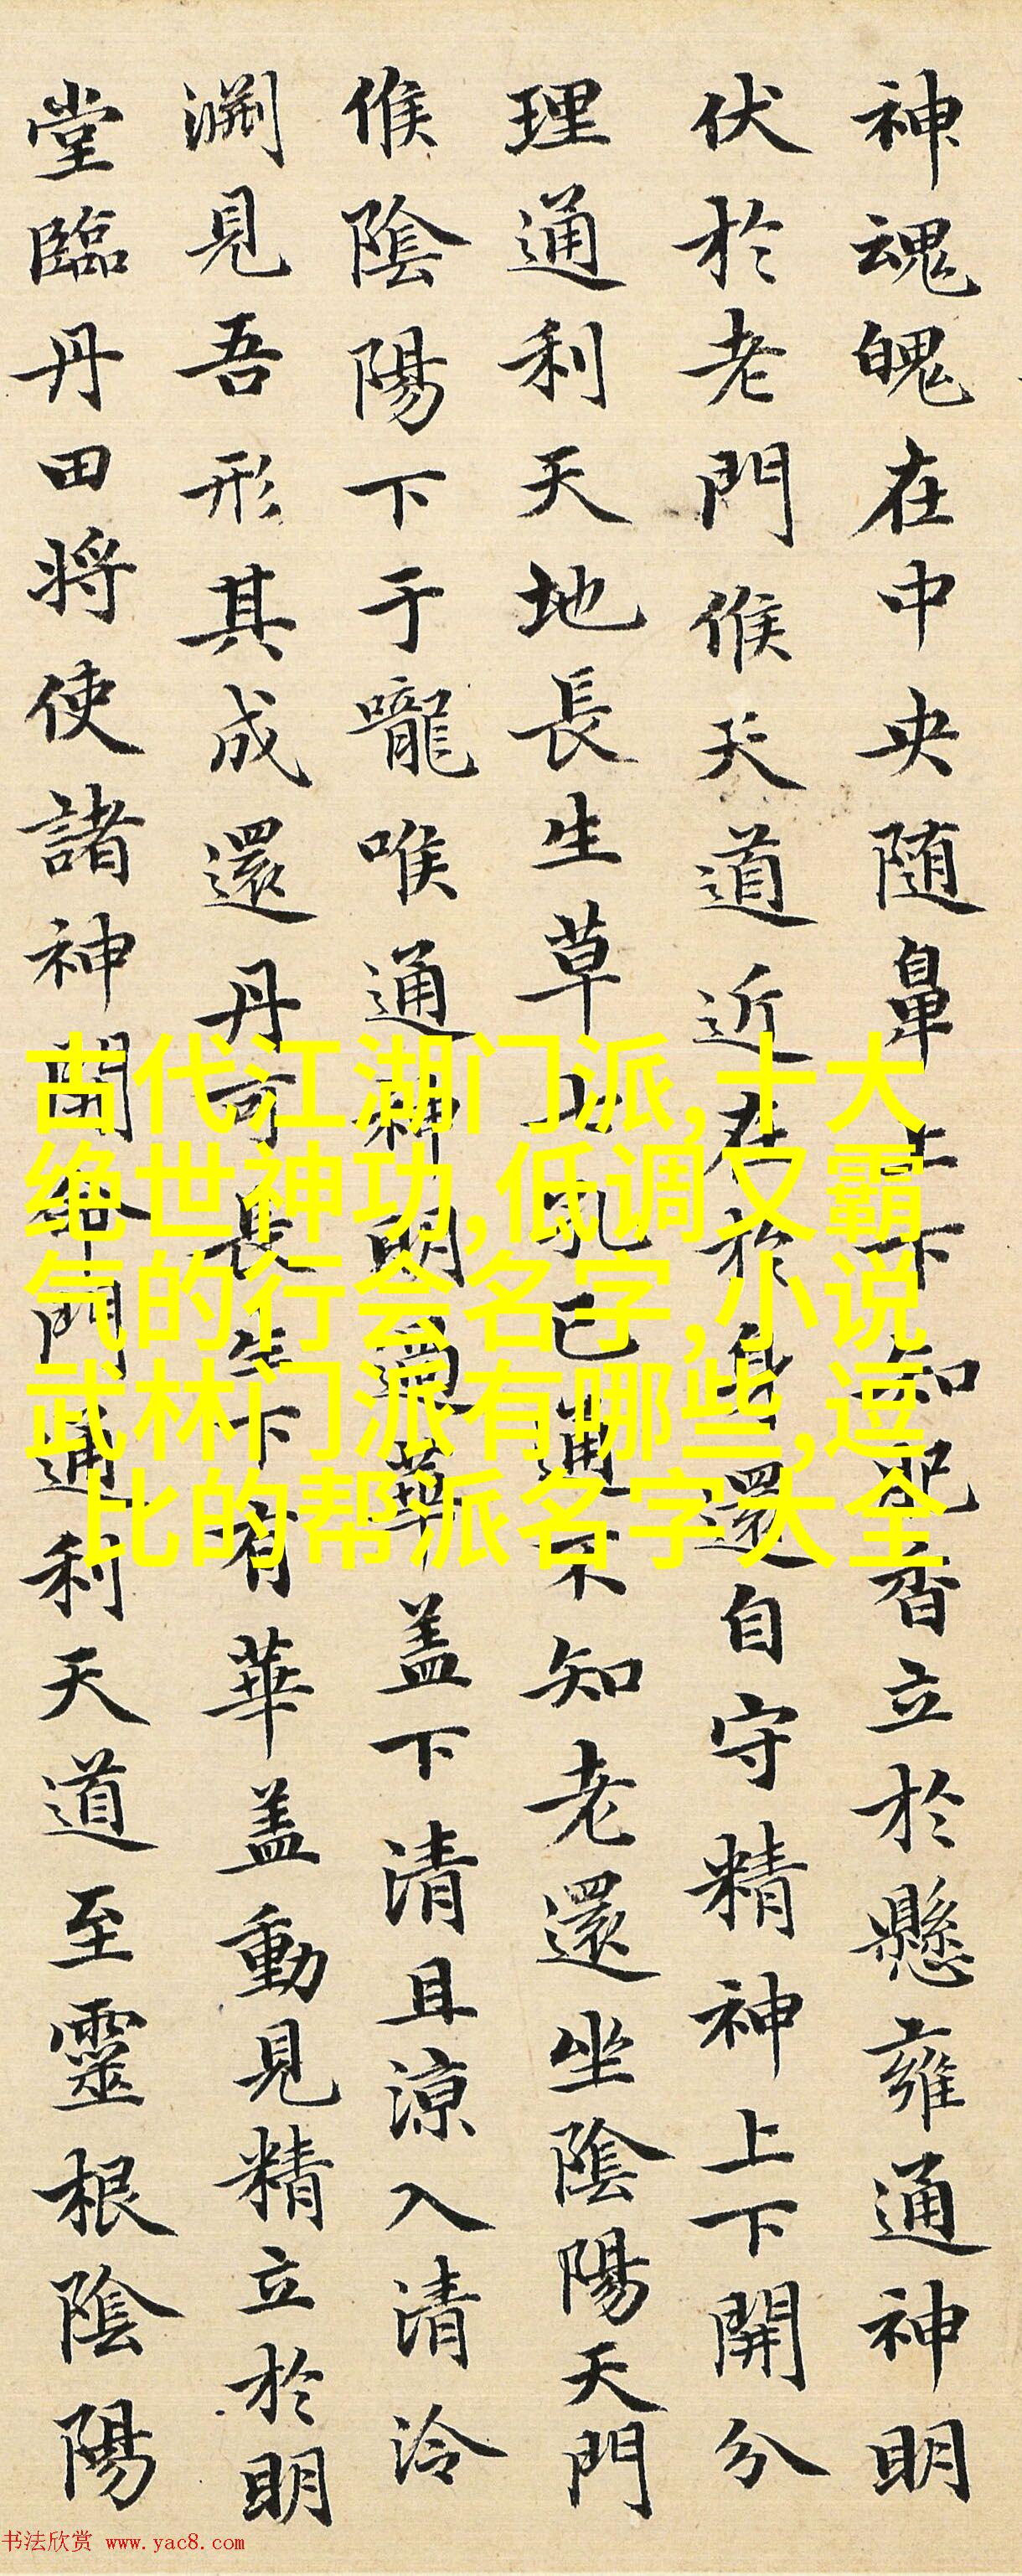 神魂魄在中央随鼻上下知肥香立於懸雍通神明
伏於老門候天道近在於身還自守精神上下開分
理通利天地長生草七孔已通不知老還坐陰陽天門
候陰陽下于嚨喉通神明過華盖下清且涼入清泠
淵見吾形其成還丹可長生下有華盖動見精立於明
堂臨丹田將使諸神開命門通利天道至靈根陰陽
古代江湖门派,十大
绝世神功,低调又霸
气的行会名字,小说
武林门派有哪些,逗
比的帮派名字大全
书法欣赏 www.yac8.com